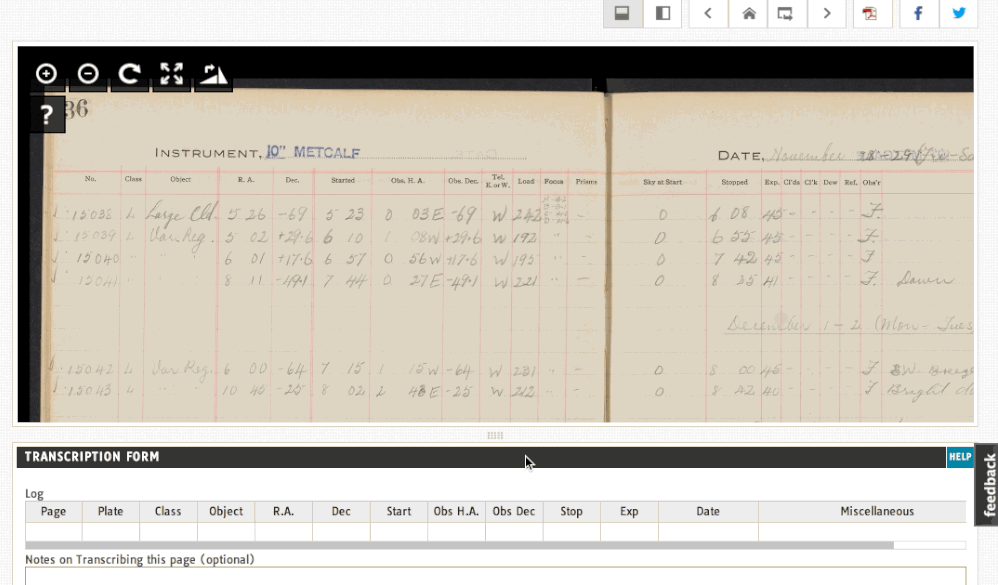 ?
36
INSTRUMENT, 10" METCALF
DATE, November
No. Class Object R. A. Dec. Started Obs. H. A. Obs. Dec. Tel. E. or W. Load Focus Prisms Sky at Start Stopped Exp. Cl'ds Cl'k Dew Ref. Obs'r
L Large Cld. 5 26 -69 5 23 0 03E -69 W 242 - 0 6 08 45 - - - - F.
15039 L Var. Reg. 5 02 +29.6 6 10 1 08W +29.6 W 192 " - 0 6 55 45 - - - - F.
15040 " " 6 01 +17.6 6 57 0 56W +17.6 W 195 " - 0 7 42 45 - - - - F
15041 " 8 11 -49.1 7 44 0 27E -49.1 W 221 " - 0 8 41 - - - - F. Dawn
December 1 - 2 (Mon - Tues
15042 L Var. Reg. 6 00 -64 7 15 1 15W -64 W 231 " - 0 8 00 45 - - - - F SW
15043 L 10 45 -25 8 02 2 E -25 W 212 " - 0 8 42 40 - - - - F Bright
TRANSCRIPTION FORM
HELP
feedback
Log
Page Plate Class Object R.A. Dec Start Obs H.A. Obs Dec Stop Exp Date Miscellaneous
Notes on Transcribing this page (optional)